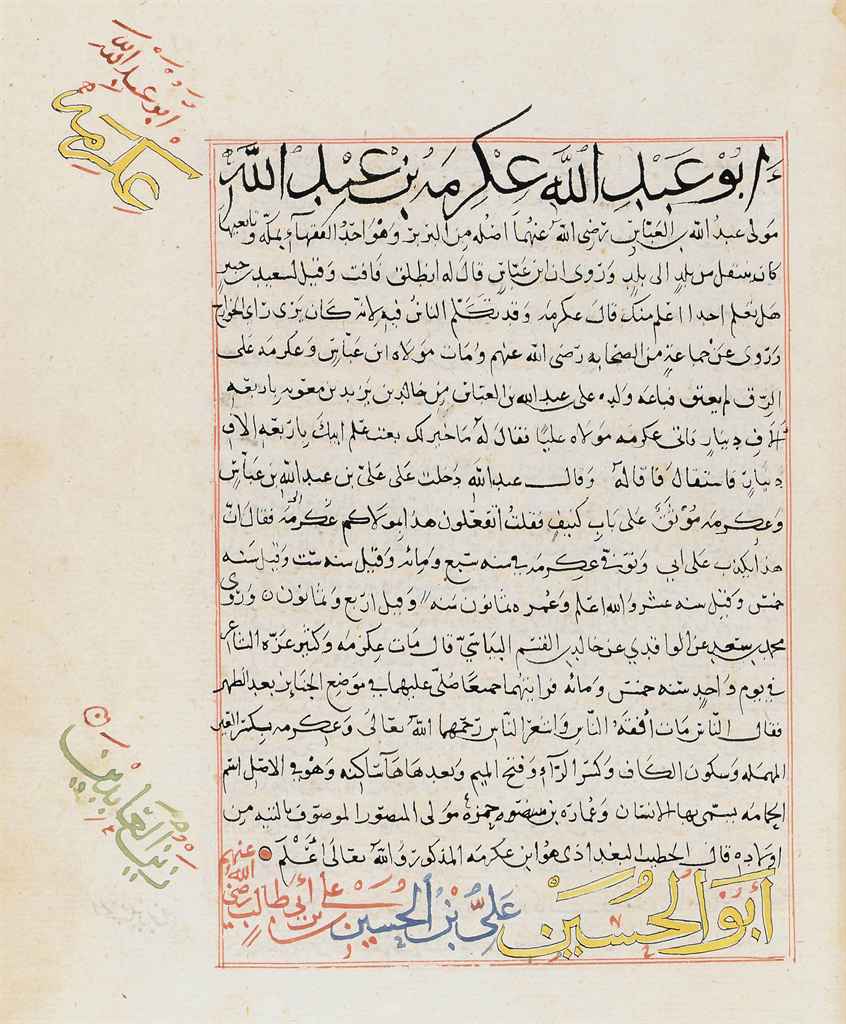 ابو عبد الله
عكرمه
ابو عبد الله عكرمه بن عبد الله
مولى عبد الله بن العباس رضى الله عنهما اصله من البربر وهو احد الفقهاء بمكه وتابعيها
كان ينتقل من بلد الى بلد وروى ان ابن عباس قال له انطلق فافت وقيل لسعيد بن جبير
هل تعلم احدا اعلم منك قال عكرمه وقد تكلم الناس فيه لانه كان يرى راى الخوارج
وروى عن جماعة من الصحابه رضى الله عنهم ومات مولاه ابن عباس وعكرمه على
الرق لم يعتق فباعه ولده على بن عبد الله بن العباس من خالد بن يزيد بن معويه باربعه
الاف دينار فاتى عكرمه مولاه عليا فقال له ما خير لك بعت علم ابيك باربعه الاف
دينار فاستقال فاقاله وقال عبد الله دخلت على على بن عبد الله بن عباس
وعكرمه موثق على باب كنيف فقلت اتفعلون هذا بمولاكم عكرمه فقال ان
هذا يكذب على ابى وتوفى عكرمه فى سنه سبع ومائه وقيل سنه ست وقيل سنه
خمس وقيل سنه عشر والله اعلم وعمره ثمانون سنه وقيل اربع وثمانون وروى
محمد بن سعد عن الواقدي عن خالد بن القسم البياضى قال مات عكرمه وكثير عزه الشاعر
فى يوم واحد سنه خمس ومائه فرايتهما جميعا صلى عليهما فى موضع الجنايز بعد الظهر
فقال الناس مات افقه الناس واشعر الناس رحمهما الله تعالى وعكرمه بكسر العين
المهمله وسكون الكاف وكسر الراء وفتح الميم وبعدها هاء ساكنه وهو فى الاصل اسم
الحمامه يسمى بها الانسان وعماره بن حمزه مولى المنصور الموصوف بالتيه من
اولاده قال الخطيب البغدادى هو ابن عكرمه المذكور والله تعالى اعلم
أبو الحسين على بن الحسين بن على بن أبى طالب رضى الله عنهم
زين العابدين